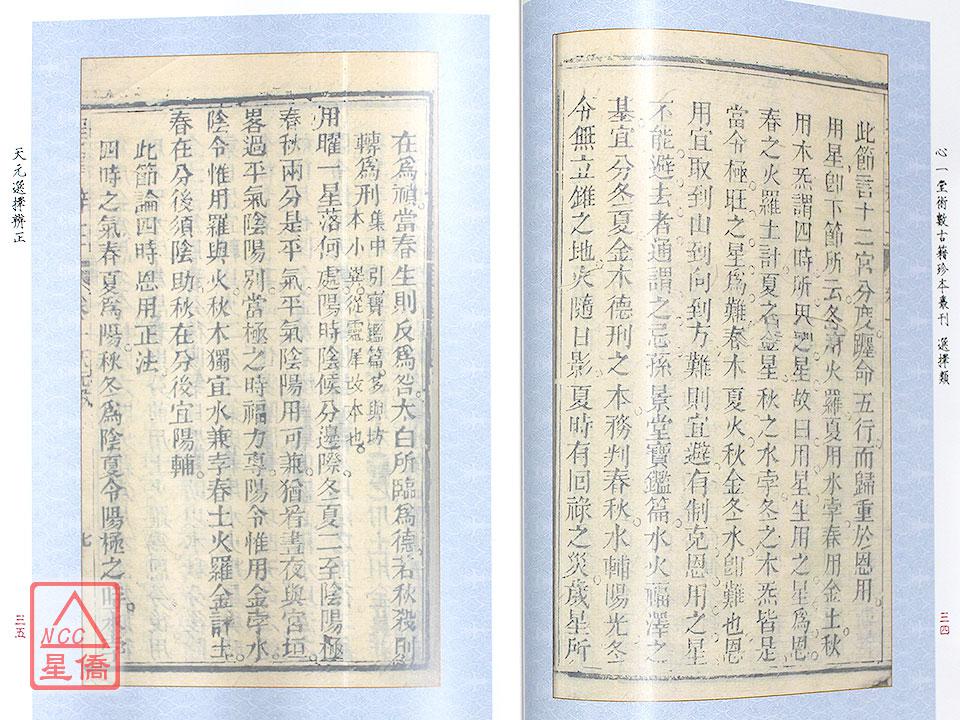 心一堂術數古籍珍本叢刊 選擇類
三四
此節言十二宮分度躔命五行而歸重於恩用
用星卽下節所云冬用火羅夏用水孛春用金土秋
用木炁謂四時所用之星故曰用星生用之星爲恩
春之火羅土計夏之金星秋之水孛冬之木炁皆是
當令極旺之星爲難春木夏火秋金冬水卽難也恩
用宜取到山到向到方難則宜避有制克恩用之星
不能避去者通謂之忌孫景堂寶鑑篇水火福澤之
基宜分冬夏金木德刑之本務判春秋水輔陽光冬
令無立錐之地火隨日影夏時有回祿之災歲星所
在爲禎當春生則反爲咎太白所臨爲德若秋殺則
轉爲刑集中引寶鑑篇多與坊
本小異從靈犀故本也
用曜一星落何處陽時陰候分邊際冬夏二至陰陽極
春秋兩分是平氣平氣陰陽用可兼猶看晝夜與宮垣
畧過平氣陰陽別當極之時福力專陽令惟用金孛水
陰令惟用羅與火秋木獨宜水兼孛春土火羅金計
春在分後須陰助秋在分後宜陽輔
此節論四時恩用正法
四時之氣春夏爲陽秋冬爲陰夏令陽極之時
七
天元選擇辨正
三五
NCC
星僑